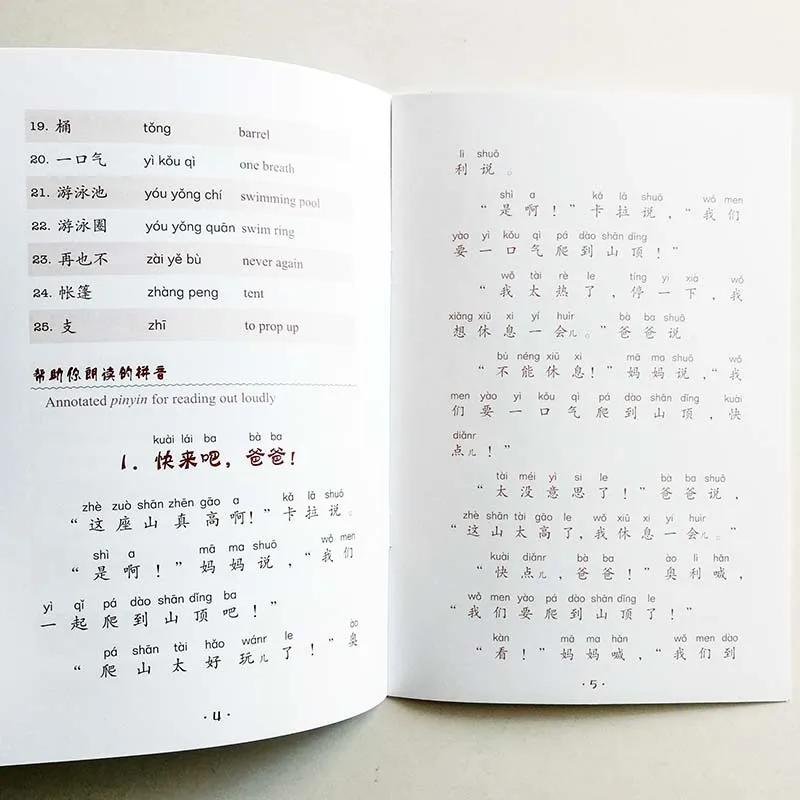 19. 桶 tǒng barrel
20. 一口气 yì kǒu qì one breath
21. 游泳池 yóu yǒng chí swimming pool
22. 游泳圈 yóu yǒng quān swim ring
23. 再也不 zài yě bù never again
24. 帐篷 zhàng peng tent
25. 支 zhī to prop up
帮助你朗读的拼音
Annotated pinyin for reading out loudly
kuài lái ba bà ba
1. 快来吧，爸爸！
zhè zuò shān zhēn gāo a kǎ lā shuō
“这座山真高啊！”卡拉说。
shì a mā ma shuō wǒ men
“是啊！”妈妈说，“我们
yì qǐ pá dào shān dǐng ba
一起爬到山顶吧！”
pá shān tài hǎo wánr le ào
“爬山太好玩儿了！”奥
·4·
lì shuō
利说。
shì a kǎ lā shuō wǒ men
“是啊！”卡拉说，“我们
yào yì kǒu qì pá dào shān dǐng
要一口气爬到山顶！”
wǒ tài rè le tíng yí xià wǒ
“我太热了，停一下，我
xiǎng xiū xi yí huìr bà ba shuō
想休息一会儿。”爸爸说
bù néng xiū xi mā ma shuō wǒ
“不能休息！”妈妈说，“我
men yào yì kǒu qì pá dào shān dǐng kuài
们要一口气爬到山顶，快
diǎnr
点儿！”
tài méi yì si le bà ba shuō
“太没意思了！”爸爸说，
zhè shān tài gāo le wǒ xiū xi yí huìr
“这山太高了，我休息一会儿。”
kuài diǎnr bà ba ào lì hǎn
“快点儿，爸爸！”奥利喊，
wǒ men yào pá dào shān dǐng le
“我们要爬到山顶了！”
kàn mā ma hǎn wǒ men dào
“看！”妈妈喊，“我们到
·5·